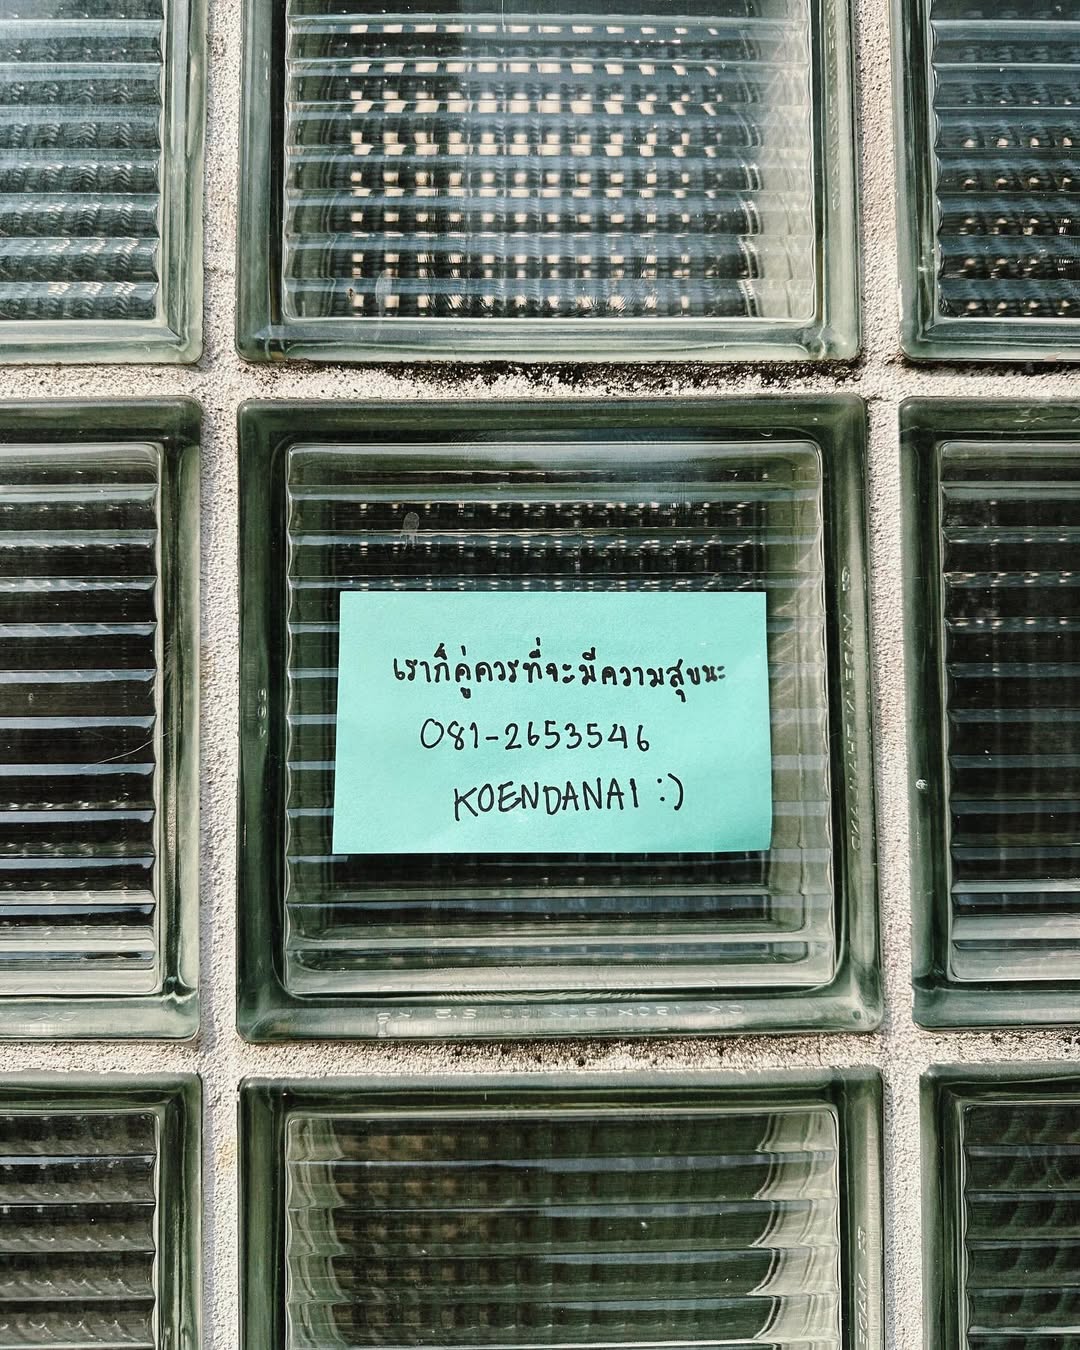 เราก็คู่ควรที่จะมีความสุขนะ
081-2653546
KOENDANAI :)